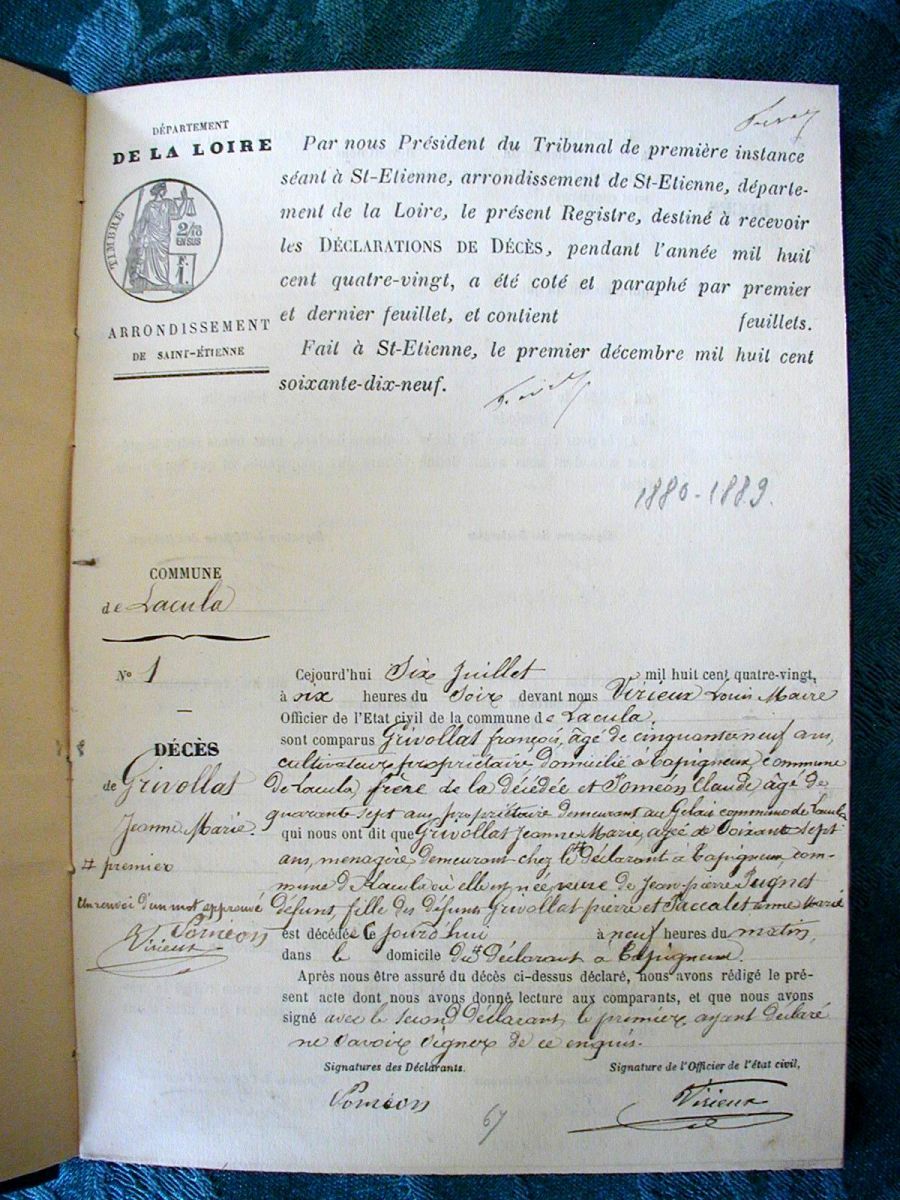 DÉPARTEMENT
DE LA LOIRE
TIMBRE
2/10
EN SUS
ARRONDISSEMENT
DE SAINT-ÉTIENNE
Par nous Président du Tribunal de première instance
séant à St-Etienne, arrondissement de St-Etienne, départe-
ment de la Loire, le présent Registre, destiné à recevoir
les DÉCLARATIONS DE DÉCÈS, pendant l'année mil huit
cent quatre-vingt, a été coté et paraphé par premier
et dernier feuillet, et contient feuillets.
Fait à St-Etienne, le premier décembre mil huit cent
soixante-dix-neuf.
1880-1889.
COMMUNE
de Lacula
No 1
DÉCÈS
de Grivollat
Jeanne Marie
# premier
Un renvoi d'un mot approuvé
Poméon
Virieux
Cejourd'hui Six Juillet mil huit cent quatre-vingt,
à six heures du Soir devant nous Virieux Louis Maire
Officier de l'Etat civil de la commune de Lacula.
sont comparus Grivollat françois, âgé de cinquante neuf ans,
cultivateur propriétaire domicilié à Capigneux, commune
de Lacula, frère de la décédée et Poméon Claude, âgé de
quarante sept ans, propriétaire demeurant au Gelais commune de Lacula
qui nous ont dit que Grivollat Jeanne Marie, agée de Soixante sept
ans, menagère, demeurant chez le # déclarant à Capigneux com-
mune de Lacula où elle est née, veuve de Jean-pierre Peignet
défunt, fille des défunts Grivollat pierre et Paccalet anne Marie
est décédée ce jourd'hui à neuf heures du matin,
dans le domicile du # déclarant à Capigneux.
Après nous être assuré du décès ci-dessus déclaré, nous avons rédigé le pré-
sent acte dont nous avons donné lecture aux comparants, et que nous avons
signé avec le second déclarant, le premier ayant déclaré
ne savoir signer de ce enquis.
Signatures des Déclarants.
Signature de l'Officier de l'état civil,
Poméon
Virieux
67